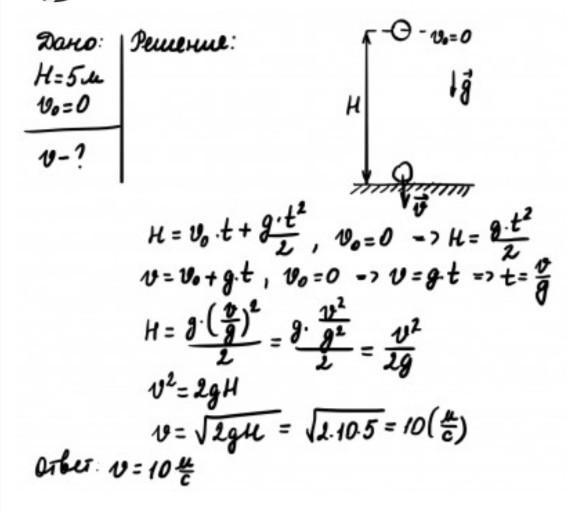 Дано:
H=5м
v₀=0
v-?
Решение:
v₀=0
H
g⃗
v⃗
H = v₀·t + g·t²/2, v₀=0 -> H = g·t²/2
v=v₀+g·t, v₀=0 -> v=g·t => t=v/g
H = g·(v/g)²/2 = g·v²/g²/2 = v²/2g
v²=2gH
v=√2gH = √2·10·5 = 10(м/с)
Ответ: v=10 м/с